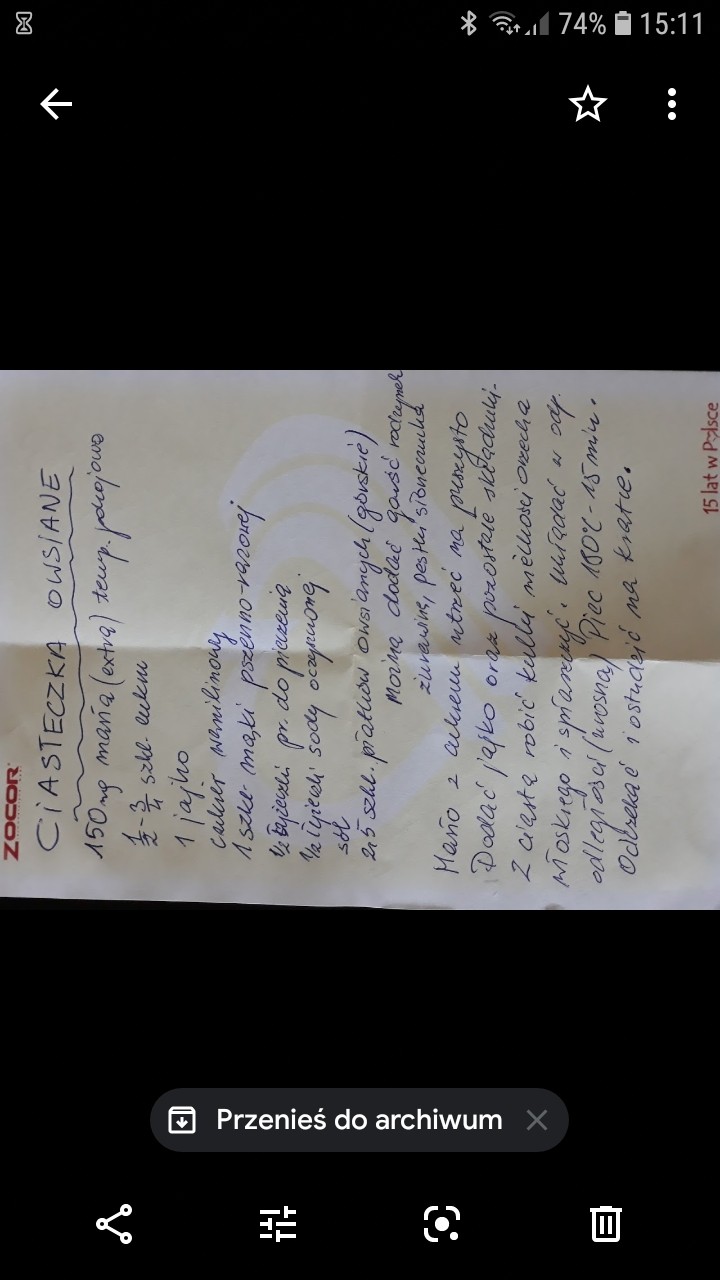 74% 15:11
ZOCOR
CIASTECZKA OWSIANE
150 mg masła (extra) temp. pokojowa
1/2 - 3/4 szkl. cukru
1 jajko
cukier wanilinowy
1 szkl. mąki pszenno-razowej
1/2 łyżeczki pr. do pieczenia
1/2 łyżeczki sody oczyszczonej
sól
2,5 szkl. płatków owsianych (górskie)
można dodać garść rodzynek
żurawinę, pestki słonecznika
Masło z cukrem utrzeć na puszysto
Dodać jajko oraz pozostałe składniki.
Z ciasta robić kulki wielkości orzecha
włoskiego i spłaszczyć. układać w odp.
odległości (urosną) Piec 180°C - 15 min.
Odczekać i ostudzić na kratce.
15 lat w Polsce
Przenieś do archiwum